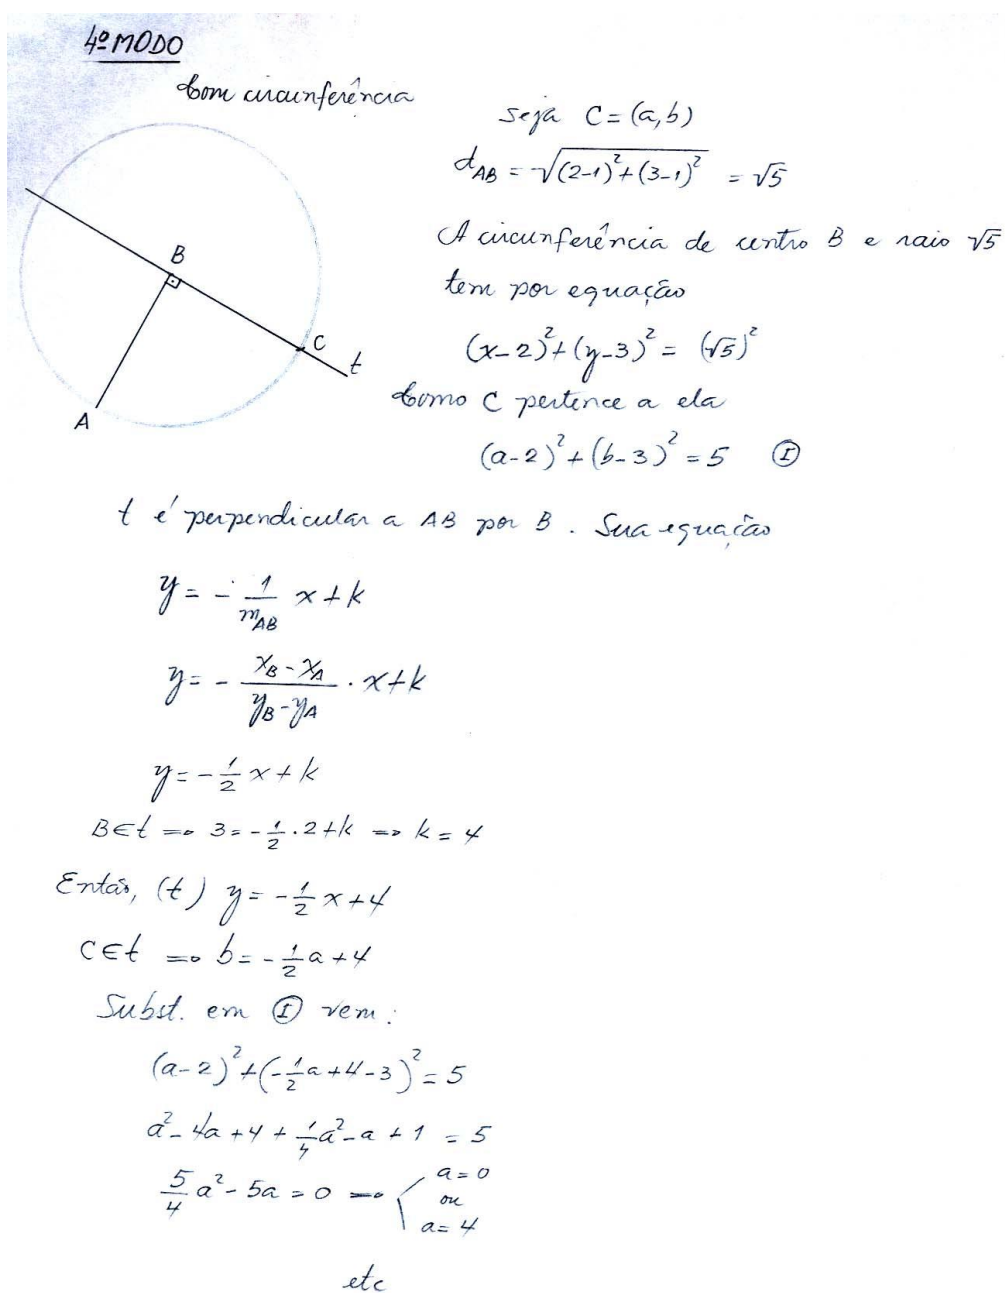 4º MODO
Com circunferência
seja C = (a,b)
d_AB = √((2-1)²+(3-1)²) = √5
B
C
t
A
A circunferência de centro B e raio √5
tem por equação
(x-2)²+(y-3)² = (√5)²
Como C pertence a ela
(a-2)²+(b-3)² = 5 Ⓘ
t é perpendicular a AB por B. Sua equação
y = - 1/m_AB x + k
y = - (x_B - x_A)/(y_B - y_A) · x + k
y = - 1/2 x + k
B∈t ⇒ 3 = - 1/2 · 2 + k ⇒ k = 4
Então, (t) y = - 1/2 x + 4
C∈t ⇒ b = - 1/2 a + 4
Subst. em Ⓘ vem:
(a-2)²+(- 1/2 a + 4 - 3)² = 5
a² - 4a + 4 + 1/4 a² - a + 1 = 5
5/4 a² - 5a = 0 ⇒ a = 0
ou
a = 4
etc